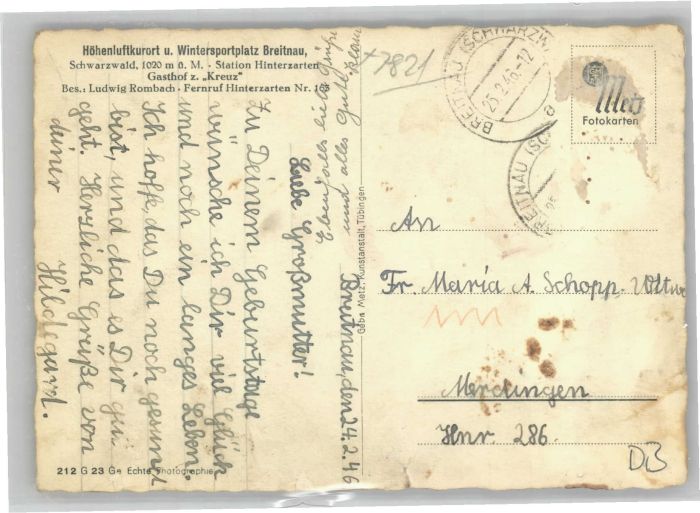 Höhenluftkurort u. Wintersportplatz Breitnau,
Schwarzwald, 1020 m ü. M. · Station Hinterzarten
Gasthof z. „Kreuz"
Bes.: Ludwig Rombach · Fernruf Hinterzarten Nr. 168
+7821
BREITNAU (SCHWARZW
25.2.46-12
a
Metz
Fotokarten
BREITNAU (SC
25
Breitnau, den 24.2.46
Liebe Großmutter!
Zu Deinem Geburtstage
wünsche ich Dir viel Glück
und noch ein langes Leben.
Ich hoffe, das Du noch gesund
bist, und das es Dir gut
geht. Herzliche Grüße von
deiner
Hildegard.
Ebenfalls liebe Grüße
und alles Gute
Gebr. Metz, Kunstanstalt, Tübingen
An
Fr. Maria A. Schopp. Witwe
Merdingen
Hnr. 286.
DB
212 G 23 Ge Echte Photographie